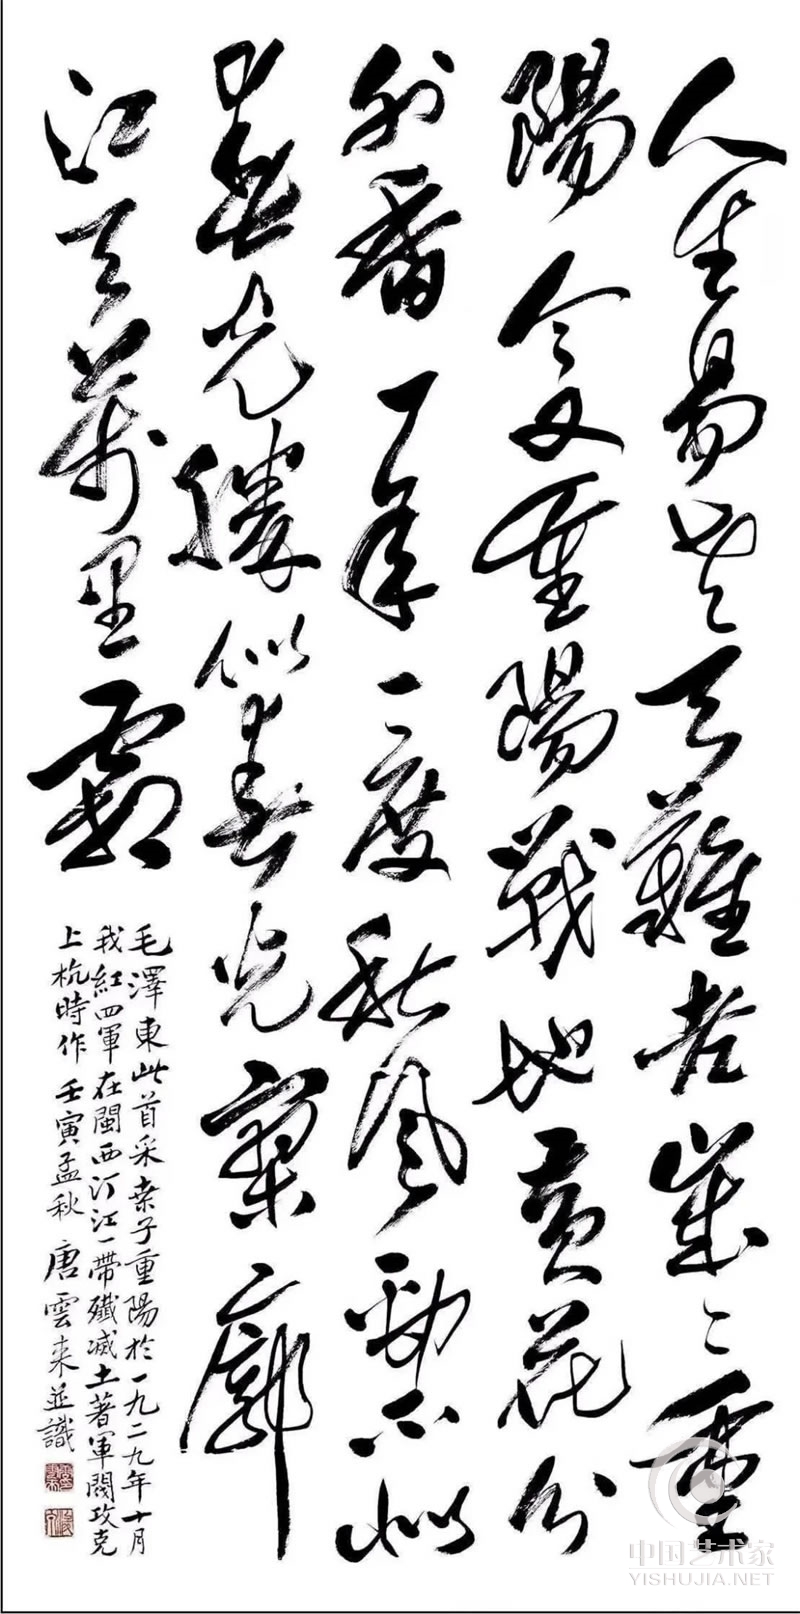 人生易老天難老歲〻重
陽今又重陽戰地黃花分
外香一年一度秋風勁不似
春光勝似春光寥廓
江天萬里霜
毛澤東此首采桑子重陽於一九二九年十月
我紅四軍在閩西汀江一帶殲滅土著軍閥攻克
上杭時作 壬寅孟秋 唐雲來並識
中国艺术家
YISHUJIA.NET